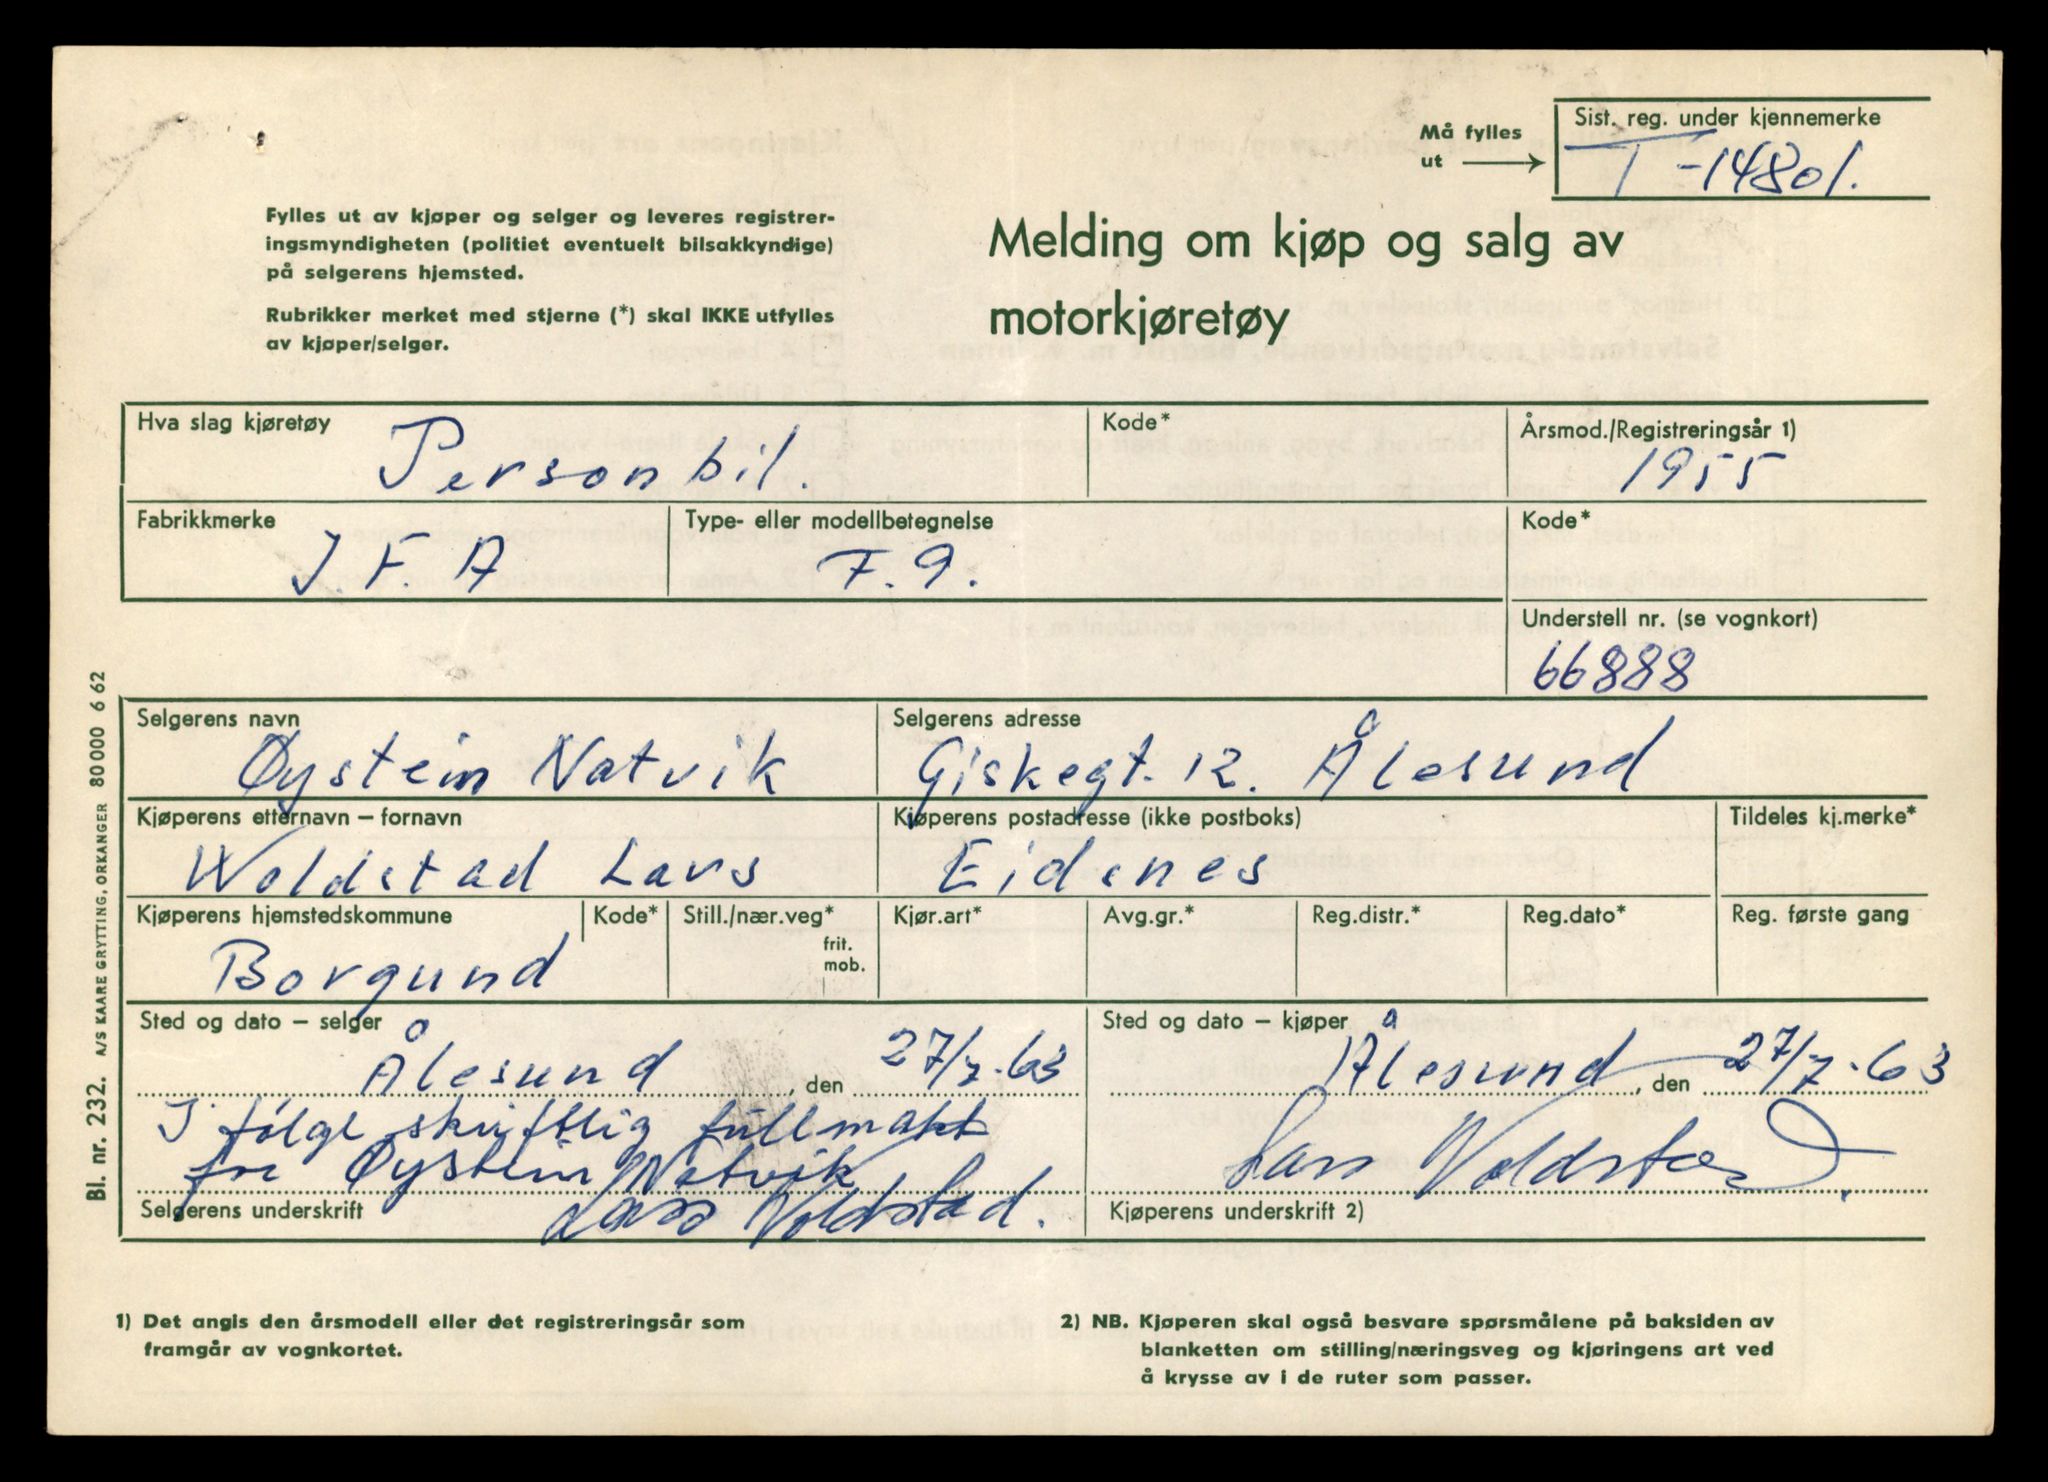 Må fylles
ut
Sist. reg. under kjennemerke
T-14801.
Fylles ut av kjøper og selger og leveres registrer-
ingsmyndigheten (politiet eventuelt bilsakkyndige)
på selgerens hjemsted.
Rubrikker merket med stjerne (*) skal IKKE utfylles
av kjøper/selger.
Melding om kjøp og salg av
motorkjøretøy
Hva slag kjøretøy
Personbil.
Kode*
Årsmod./Registreringsår 1)
1955
Fabrikkmerke
J. F. A
Type- eller modellbetegnelse
F. 9.
Kode*
Understell nr. (se vognkort)
66888
Selgerens navn
Øystein Natvik
Selgerens adresse
Giskegt. 12. Ålesund
Kjøperens etternavn – fornavn
Woldstad Lars
Kjøperens postadresse (ikke postboks)
Eidsnes
Tildeles kj.merke*
Kjøperens hjemstedskommune
Borgund
Kode*
Still./nær.veg*
frit.
mob.
Kjør.art*
Avg.gr.*
Reg.distr.*
Reg.dato*
Reg. første gang
Sted og dato – selger
Ålesund, den 27/7-63
I følge skriftlig fullmakt
fra Øystein Natvik
Lars Voldstad.
Selgerens underskrift
Sted og dato – kjøper
Ålesund, den 27/7-63
Lars Voldstad.
Kjøperens underskrift 2)
1) Det angis den årsmodell eller det registreringsår som
framgår av vognkortet.
2) NB. Kjøperen skal også besvare spørsmålene på baksiden av
blanketten om stilling/næringsveg og kjøringens art ved
å krysse av i de ruter som passer.
Bl. nr. 232. A/S KAARE GRYTTING, ORKANGER 80000 6 62